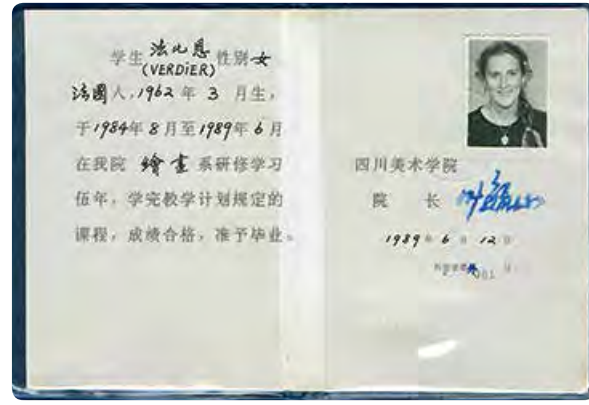 学生 法比恩 性别 女
(VERDiER)
法國人，1962 年 3 月生，
于1984年8月至1989年6月
在我院 繪畫 系研修学习
伍年，学完教学计划规定的
课程，成绩合格，准予毕业。
四川美术学院
院 长
1989 年 6 月 12 日